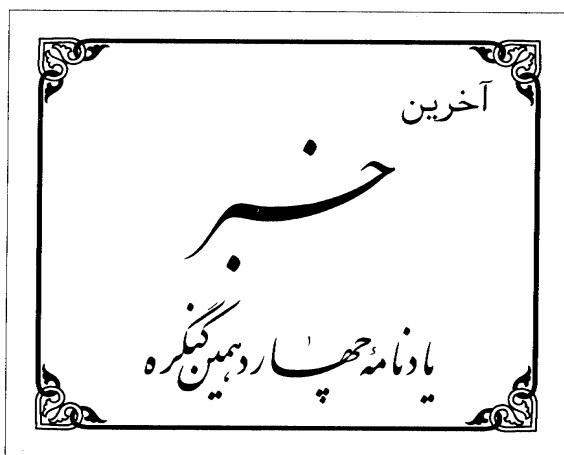 آخرین
خبر
یادنامهٔ چهاردهمین کنگره